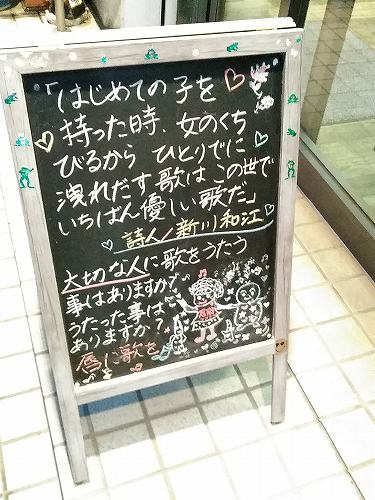 「はじめての子を
持った時、女のくち
びるから ひとりでに
洩れだす歌は この世で
いちばん優しい歌だ」
詩人/新川和江
大切な人に歌をうたう
事はありますか?
うたった事は
ありますか?
唇に歌を